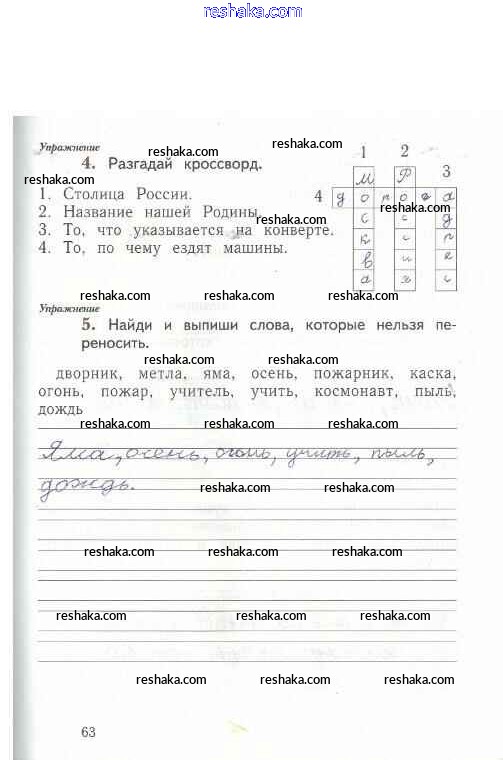 reshaka.com
Упражнение
4. Разгадай кроссворд.
reshaka.com reshaka.com
reshaka.com reshaka.com reshaka.com
1. Столица России.
2. Название нашей Родины.
3. То, что указывается на конверте.
4. То, по чему ездят машины.
reshaka.com reshaka.com reshaka.com
1 2 3
М Р
4 д о р о г а
с с д
к с р
в и е
а я с
reshaka.com reshaka.com reshaka.com
Упражнение
5. Найди и выпиши слова, которые нельзя пе-
реносить.
reshaka.com reshaka.com reshaka.com
дворник, метла, яма, осень, пожарник, каска,
огонь, пожар, учитель, учить, космонавт, пыль,
дождь
reshaka.com reshaka.com reshaka.com
Яма, осень, огонь, учить, пыль,
дождь.
reshaka.com reshaka.com
reshaka.com reshaka.com reshaka.com
reshaka.com reshaka.com reshaka.com
reshaka.com reshaka.com reshaka.com
63